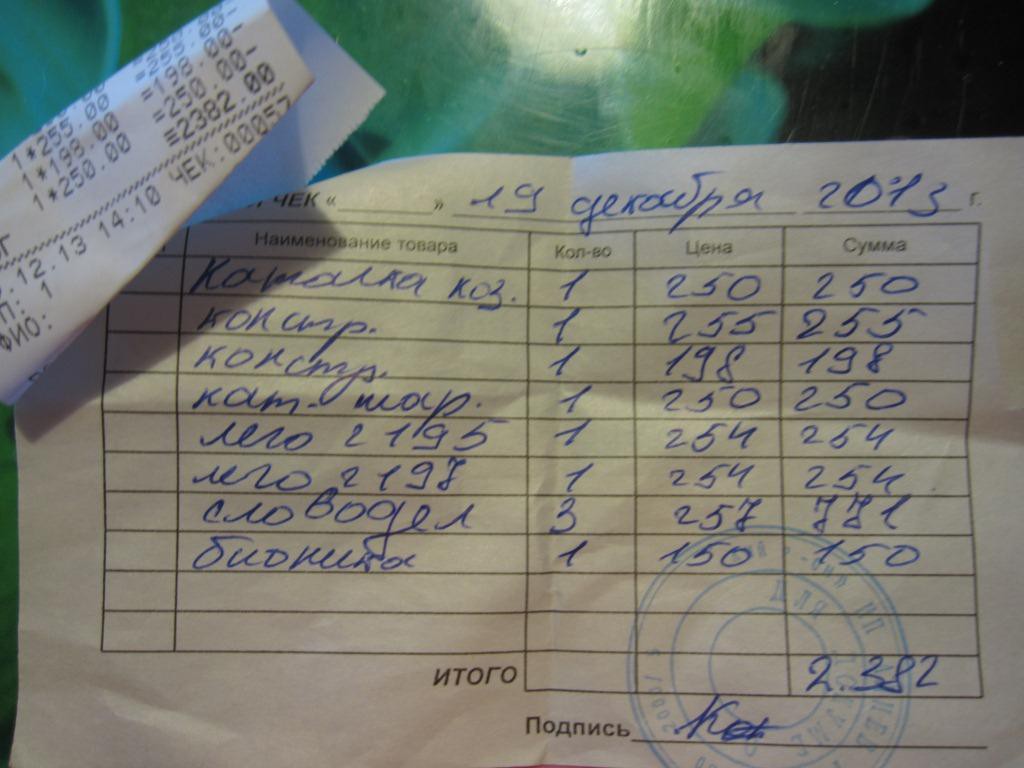 1*255.00
1*198.00 =198.00
1*250.00 =250.00
≡2382 00
.12.13 14:10 ЧЕК:00057
П: 1
ФИО:
ЧЕК « » 19 декабря 2013 г.
Наименование товара Кол-во Цена Сумма
Каталка коз. 1 250 250
констр. 1 255 255
констр. 1 198 198
кат. шар. 1 250 250
лего 2195 1 254 254
лего 2197 1 254 254
словодел 3 257 771
бионика 1 150 150
ИТОГО 2.382
Подпись
ДЛЯ